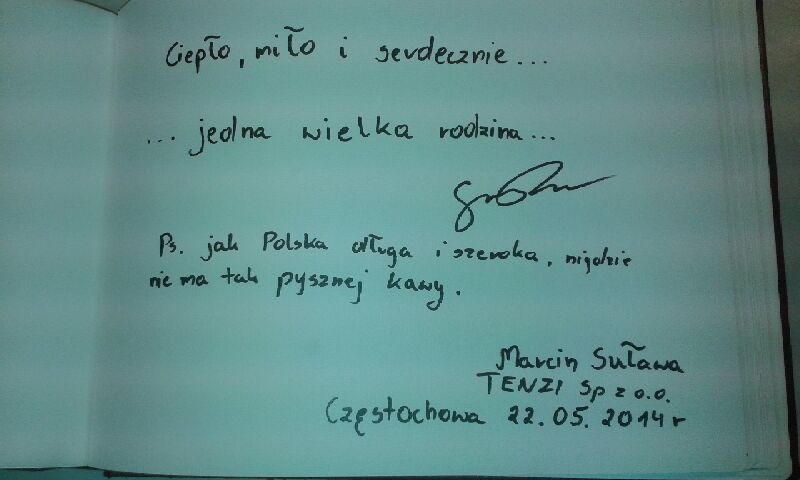 Ciepło, miło i serdecznie...
... jedna wielka rodzina...
Ps. jak Polska długa i szeroka, nigdzie
nie ma tak pysznej kawy.
Marcin Suława
TENZI Sp z o.o.
Częstochowa 22.05.2014 r